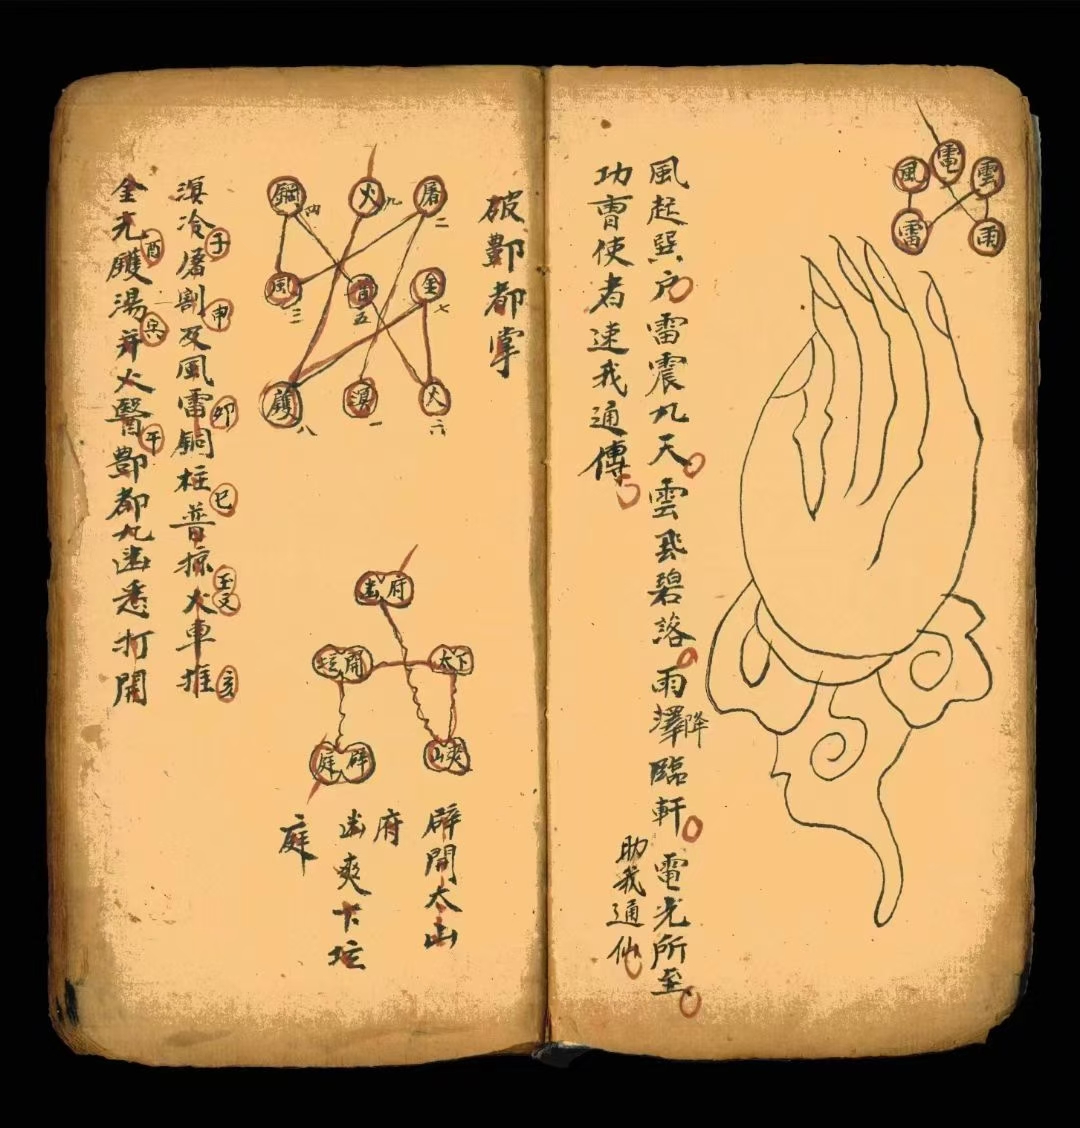 風 雷 雲
雷 雨
風起巽户雷震九天雲飛碧落雨澤降臨軒電光所至
功曹使者速我通傳
助我通仙
破酆都掌
銅四 火九 屠二
風三 五 金七
鑊八 溟一 火六
幽府
坛開 太下
庭辟 山爽
辟開太山
府
幽爽下坛
庭
溟冷屠割及風雷銅柱普掠火車推
子 申 卯 巳 丑 亥
金光鑊湯并火醫酆都九幽悉打開
酉 午